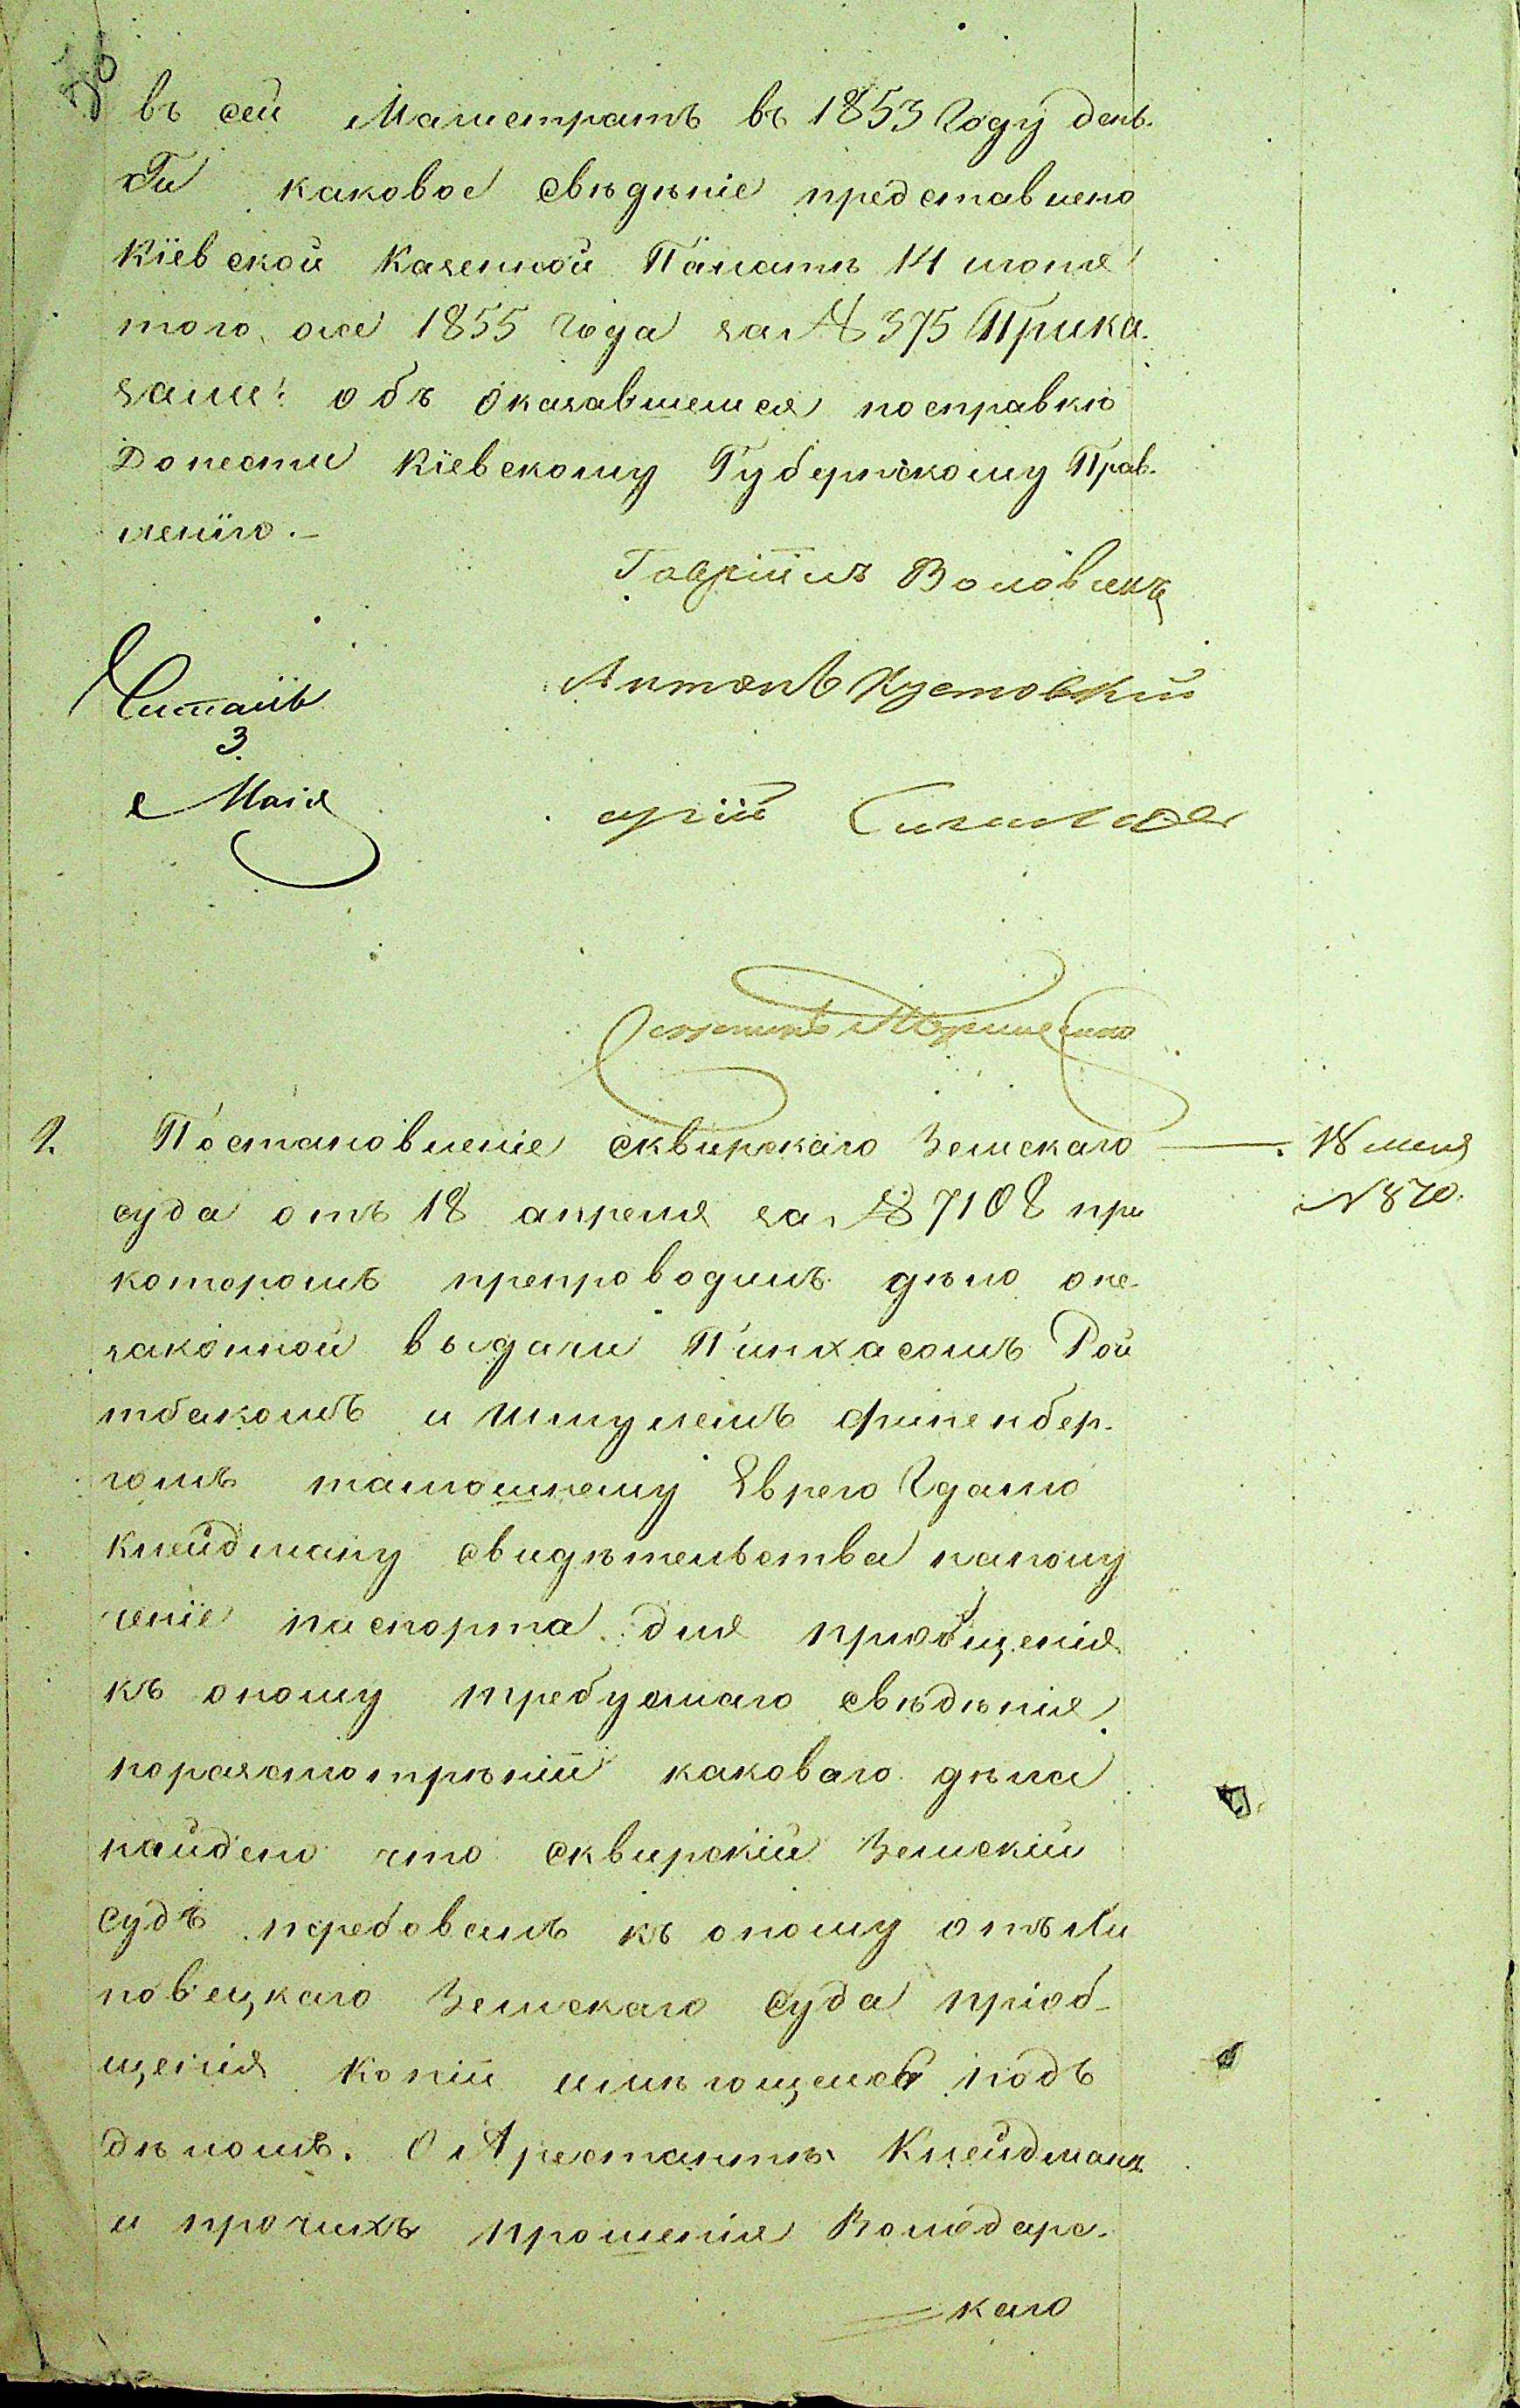 въ сей Магистратъ въ 1853 Году день-
Ги каковое свѣдѣніе представлено
Кіевской Казенной Палатѣ 14 июня
того же 1855 года за № 375 Прика-
зали: объ оказавшемся посправкѣ
Донести Кіевскому Губернскому Прав-
ленію.—
Гавріилъ
Антонъ
Читалъ
3
Мая
2. Постановленіе сквирскаго Земскаго — 18 июня
суда отъ 18 апреля за № 7108 при № 870.
которомъ препроводилъ дѣло оне-
законной выдачи Пинхасомъ Рой
тбакомъ и Шмулемъ Финенбер-
гомъ тамошнему Еврею Гдалю
Кнейдману свидѣтельства наполу
ченіе паспорта для приобщенія
къ оному требуемаго свѣдѣнія
поразсмотрѣніи каковаго дѣла
найдено что сквирскій Земскій
Судъ требовалъ къ оному отъ Ли
повецкаго Земскаго Суда приоб-
щенія Копіи имѣющейся подъ
дѣломъ. О Арестантѣ Кнейдманѣ
и прочихъ прошенія Володарс-
каго